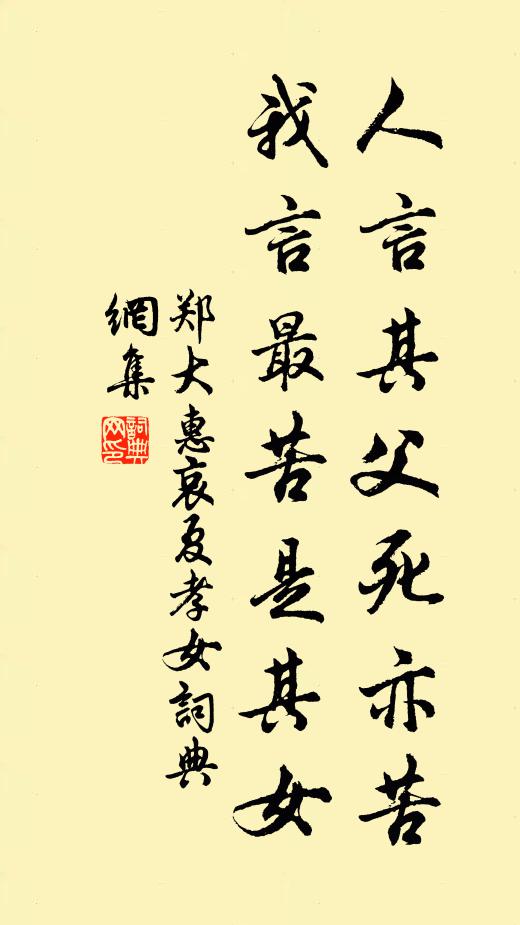 人言其父死亦苦
我言最苦是其女
郑大惠哀夏孝女詞典
網集
詞典网印